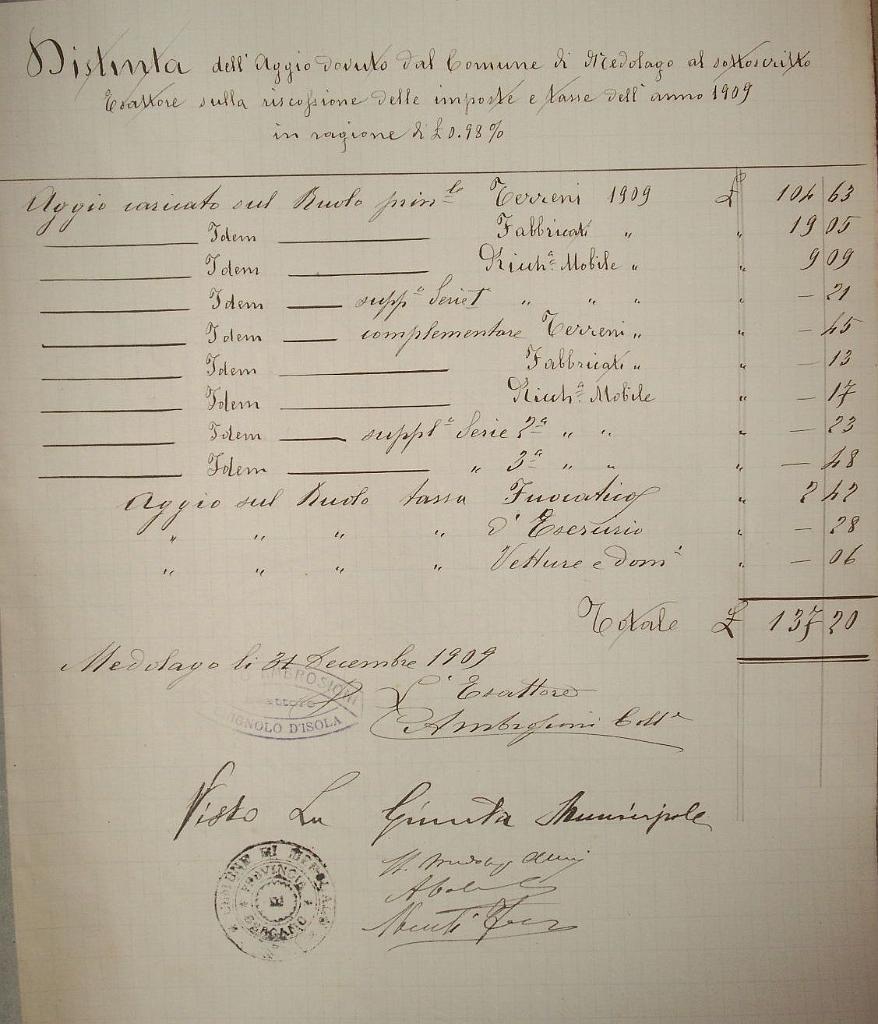 Distinta dell'Aggio dovuto dal Comune di Medolago al sottoscritto
Esattore sulla riscossione delle imposte e tasse dell'anno 1909
in ragione di £ 0.98%
Aggio caricato sul Ruolo prin.le Terreni 1909 £ 104 63
Idem Fabbricati " " 19 05
Idem Ricch.a Mobile " " 9 09
Idem supp.o Serie 1a " " " " — 21
Idem complementare Terreni " " — 45
Idem Fabbricati " " — 13
Idem Ricch.a Mobile " — 17
Idem suppl.o Serie 2a " " " — 23
Idem " 3a " " " — 48
Aggio sul Ruolo tassa Fuocatico " 2 42
" " " " d'Esercizio " — 28
" " " " Vetture e dom.i " — 06
Totale £ 137 20
Medolago li 31 Decembre 1909
AMBROSIONI
GNOLO D'ISOLA
L'Esattore
Ambrosioni
Visto La Giunta Municipale
COMUNE DI MEDOLAGO
PROVINCIA
DI
BERGAMO